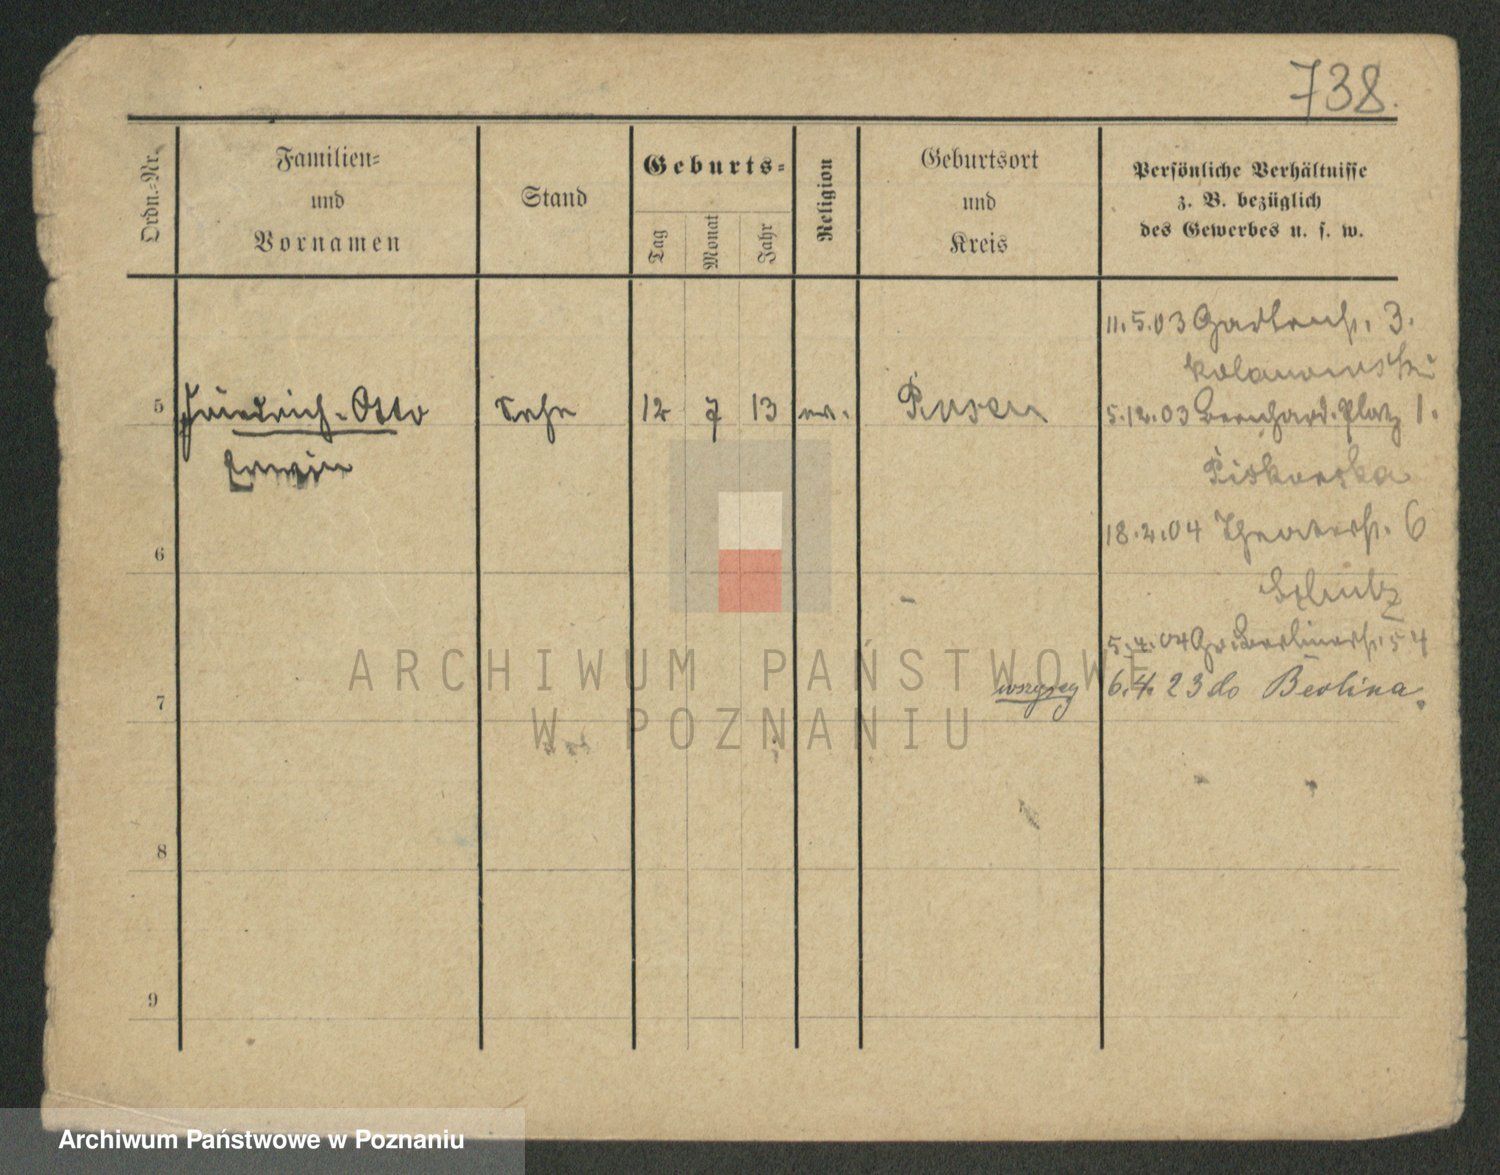 738.
Ordn.-Nr.
Familien-
und
Vornamen
Stand
Geburts-
Tag
Monat
Jahr
Religion
Geburtsort
und
Kreis
Persönliche Verhältnisse
z. B. bezüglich
des Gewerbes u. s. w.
11.5.03 Gartenstr. 3.
Kolanowski
5 Friedrich-Otto Sohn 12 7 13 ev. Posen
Erwin
5.12.03 Bernhard. Platz 1.
Piskorska
18.2.04 Theaterstr. 6
6
5.4.04 Gr. Berlinerstr. 54
wszyscy 6.4.23 do Berlina.
7
8
9
ARCHIWUM PAŃSTWOWE
W POZNANIU
Archiwum Państwowe w Poznaniu